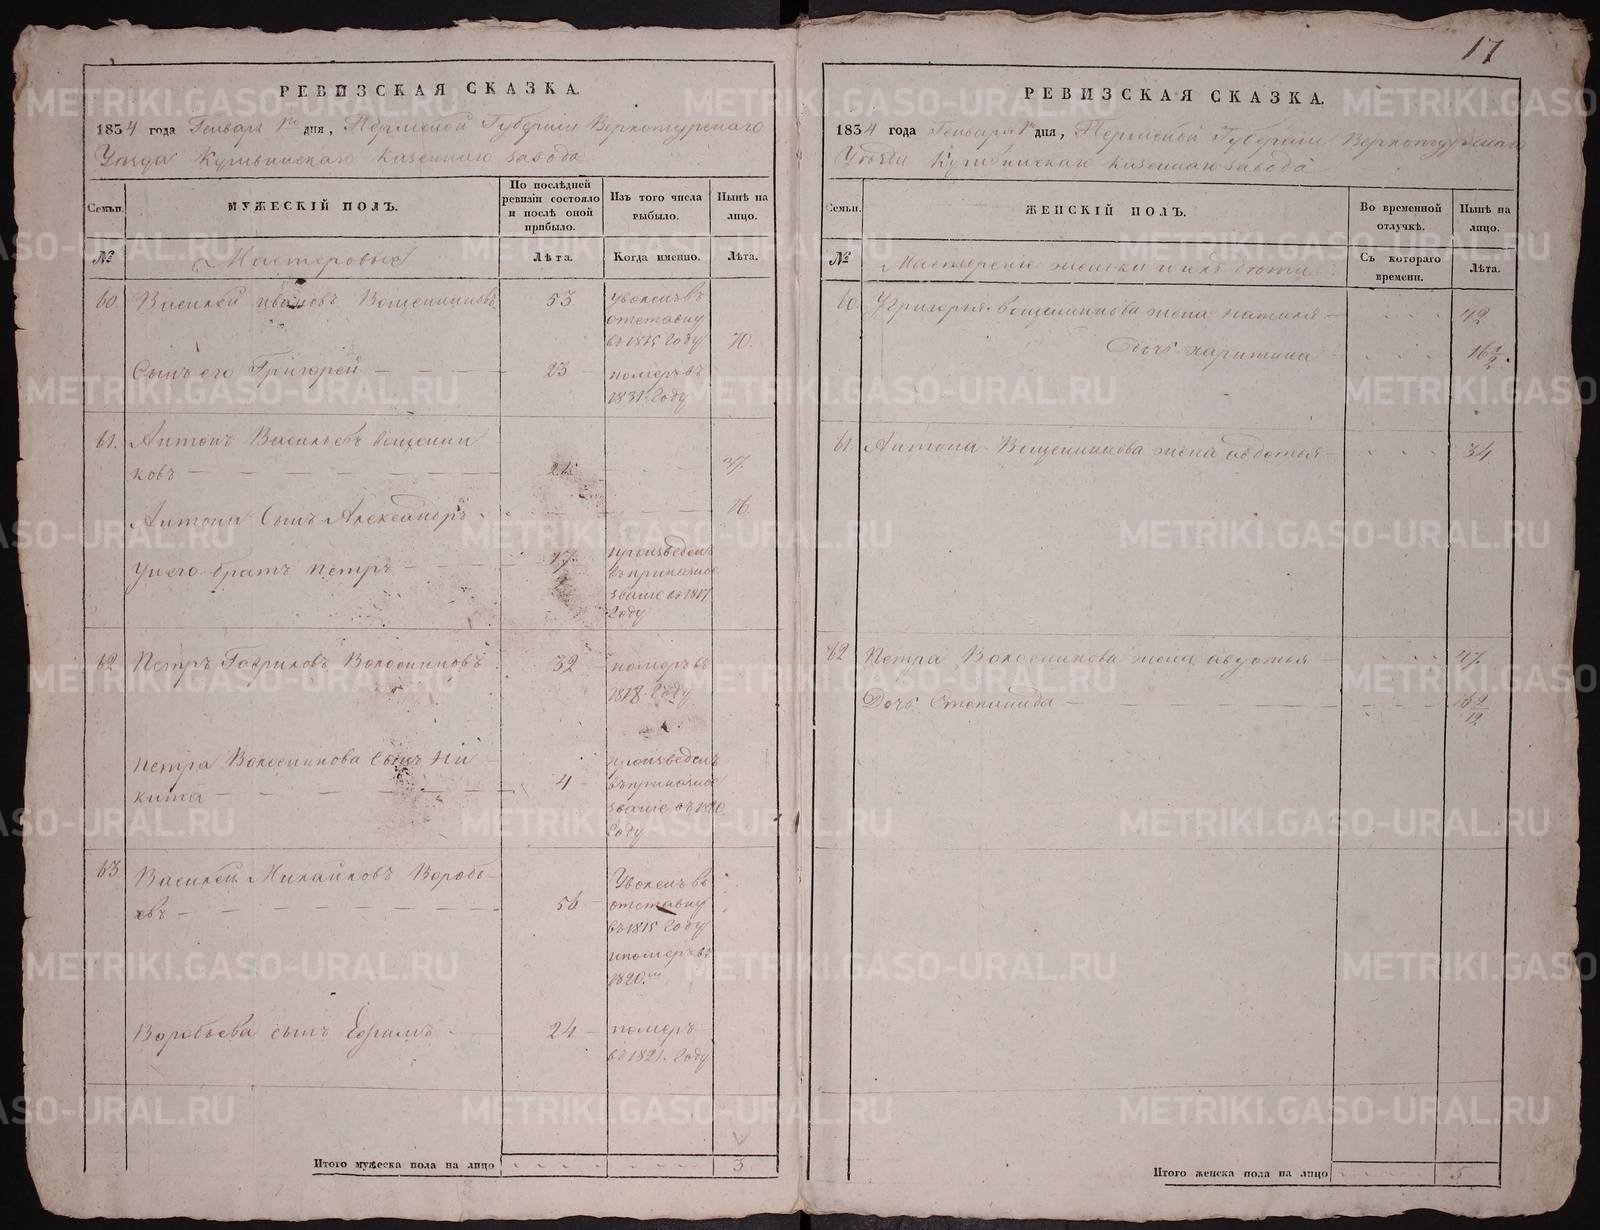 17
РЕВИЗСКАЯ СКАЗКА.
1834 года Генваря 1го дня, Пермской Губернии Верхотурскаго
Уезда Кушвинскаго казеннаго завода
Семьи.
МУЖЕСКІЙ ПОЛЪ.
По послѣдней ревизіи состояло и послѣ оной прибыло.
Изъ того числа выбыло.
Нынѣ на лицо.
№
Мастеровые
Лѣта.
Когда именно.
Лѣта.
60 Василей Ивановъ Вощенниковъ 53 уволенъ въ
отставку
въ 1815 году 70.
Сынъ его Григорей 23 померъ въ
1831 году
61. Антонъ Васильевъ Вощенни
ковъ 21 37.
Антона сынъ Александръ 16.
У него братъ Петръ 17. произведенъ
въ приказное
званіе въ 1817
году
62 Петръ Гавриловъ Волосниковъ 32 померъ въ
1818 году
Петра Волосникова сынъ Ни
кита 4 произведенъ
въ приказное
званіе въ 1820
году
63 Василей Михайловъ Воробь
евъ 56 Уволенъ въ
отставку
въ 1815 году
и померъ въ
1820
Воробьева сынъ Ефимъ 24 померъ
въ 1821 году
Итого мужеска пола на лицо 3
РЕВИЗСКАЯ СКАЗКА.
1834 года Генваря 1 дня, Пермской Губернии Верхотурскаго
Уезда Кушвинскаго казеннаго завода
Семьи.
ЖЕНСКІЙ ПОЛЪ.
Во временной отлучкѣ.
Нынѣ на лицо.
№
Мастерскіе женки и ихъ дочти
Съ котораго времени.
Лѣта.
60. У Григорья Вощенникова жена Наталья 42
Дочь Харитина 16 1/2
61 Антона Вощенникова жена Авдотья 34
62 Петра Волосникова жена Авдотья 47.
Дочь Степанида 16 9/12
Итого женска пола на лицо 5
METRIKI.GASO-URAL.RU